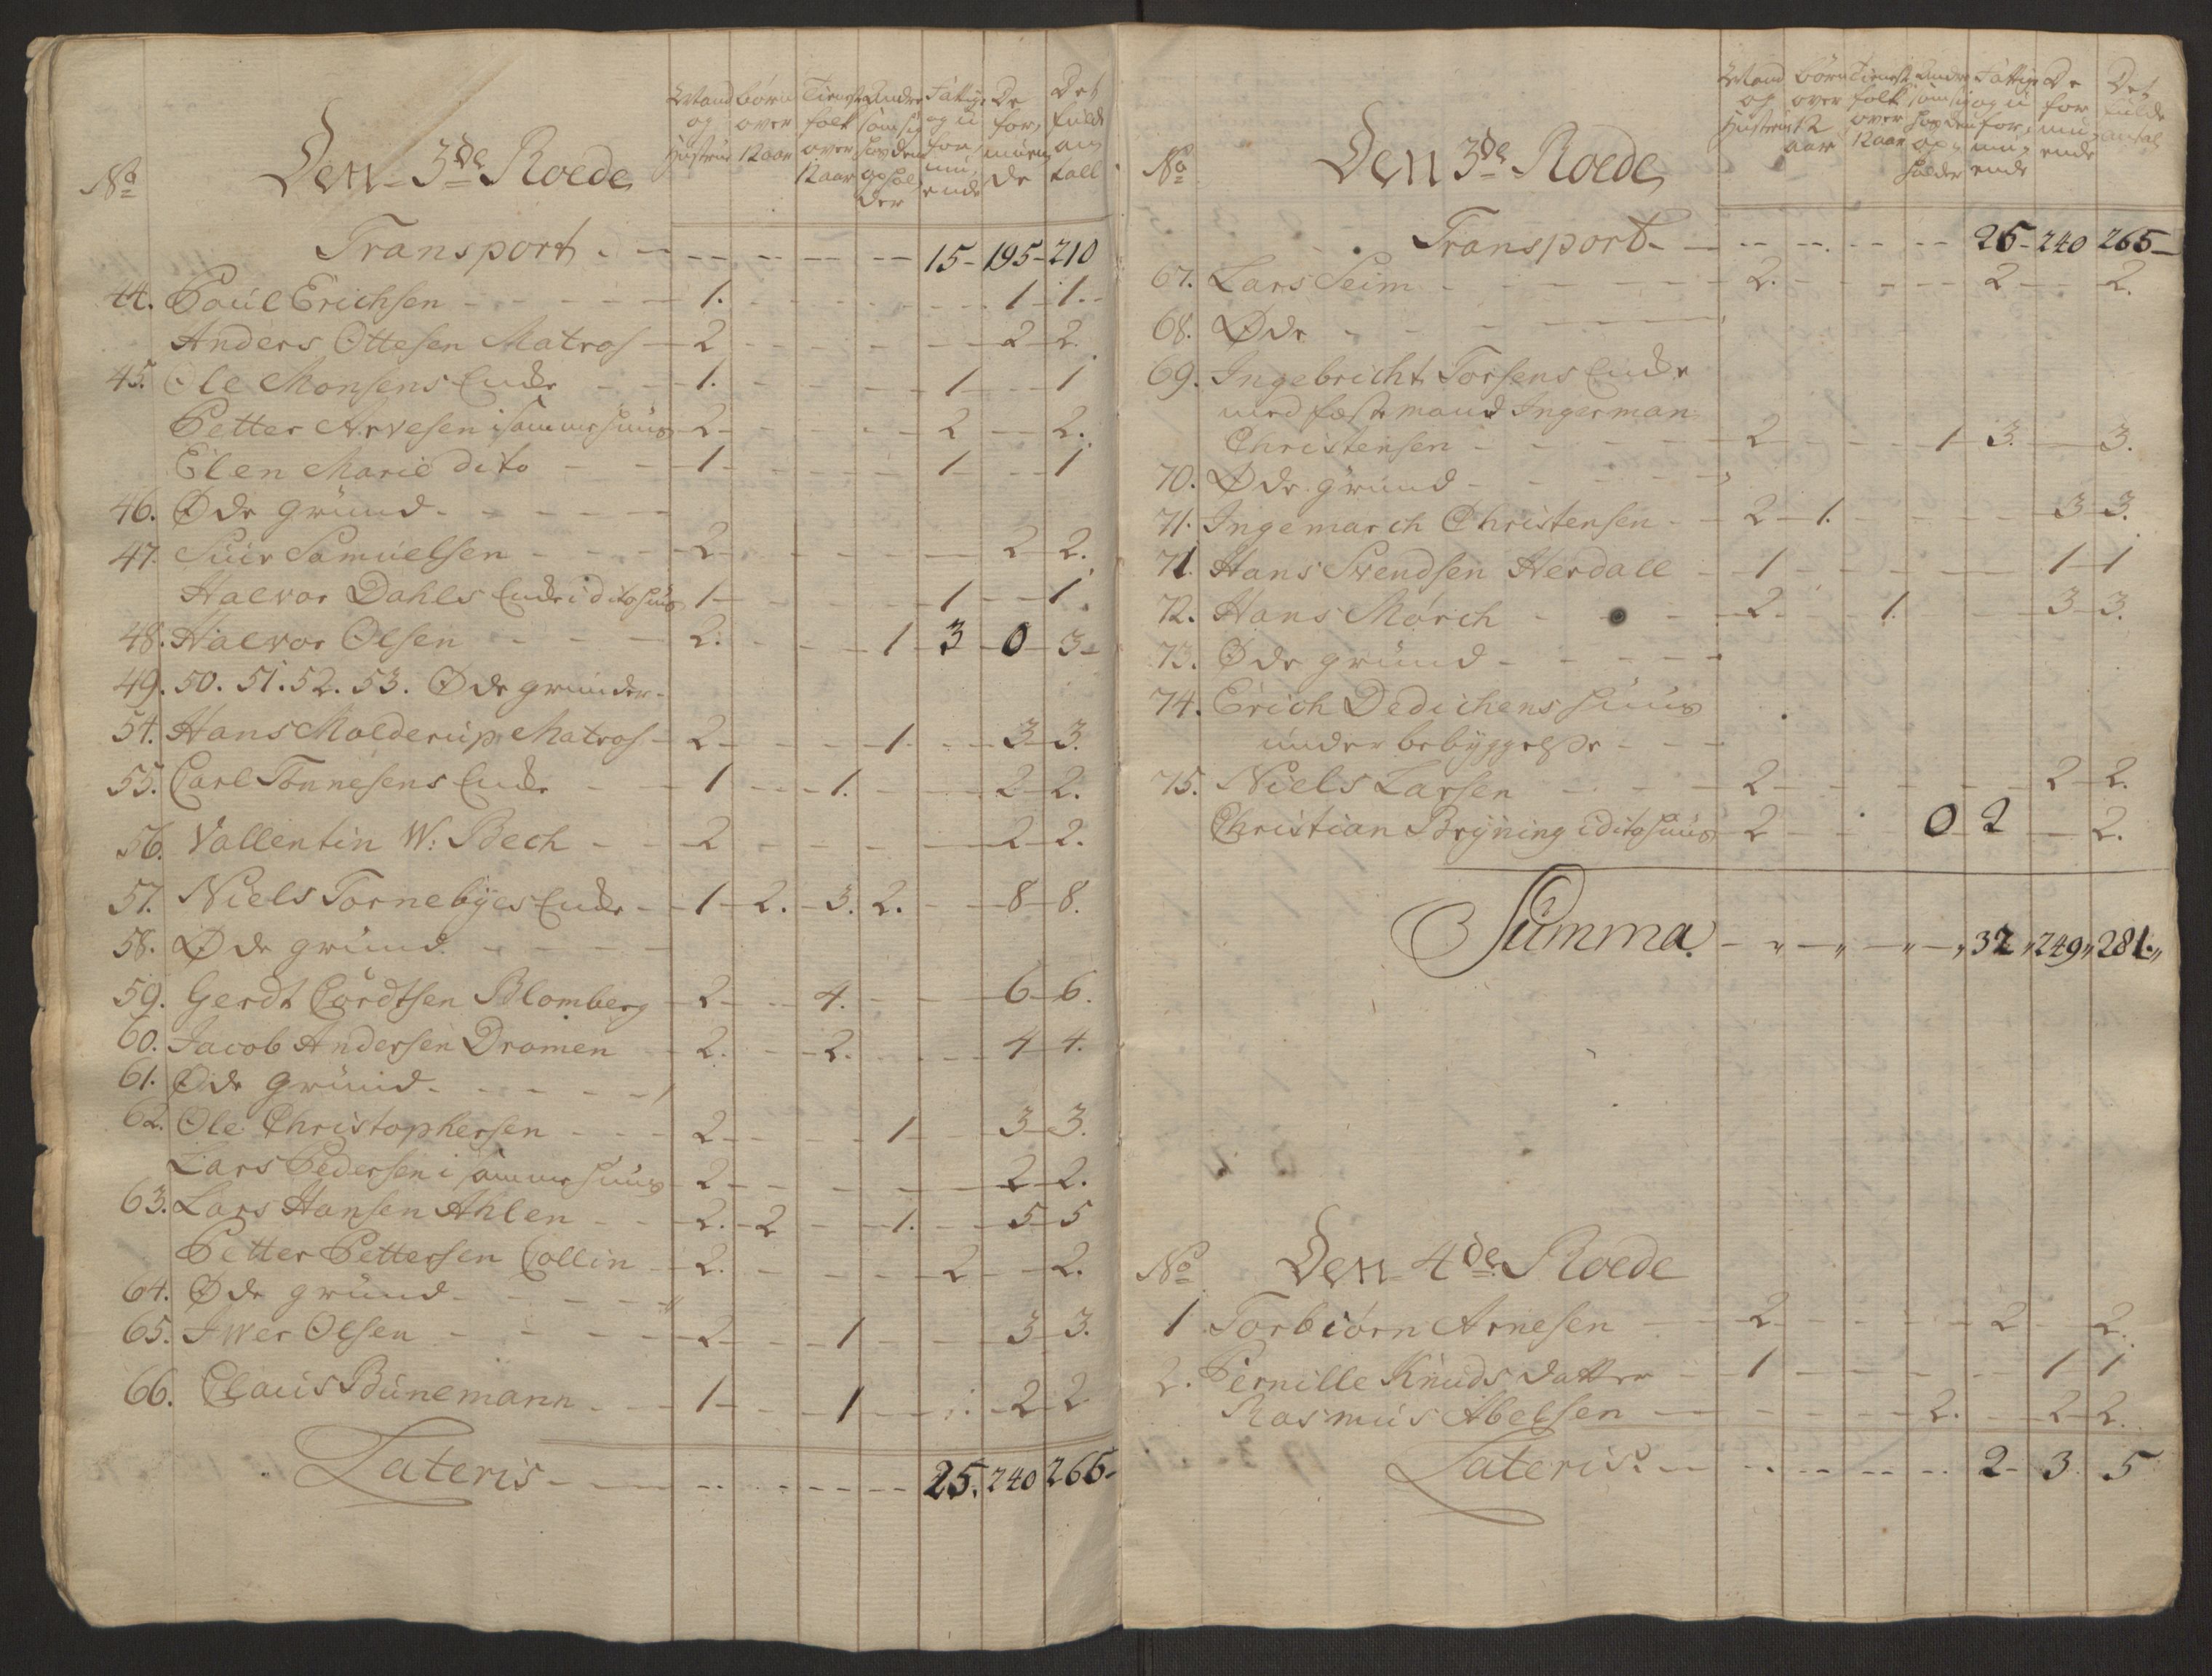 Mand og Hustrue | børn over 12 aar | Tieneste folk over 12 aar | Andre som sig hos dem opholder | Fattige og uformuende | De formuende | Det fulde antall
No Den 3de Roede
Transport. - - - 15 - 195 - 210
44. Poul Erichsen - 1. - 1 - 1.
Anders Ottesen Matros - 2 - 2 - 2.
45. Ole Monsens Enche - 1. - 1 - 1
Petter Arvesen i samme huus - 2 - 2 - 2.
Elen Marie dito - 1 - 1 - 1
46. Øde grund - - -
47. Siur Samuelsen - 2 - 2 2.
Halvor Dahls Enche i dito huus 1 - 1 - 1.
48. Halvor Olsen - 2. - 1 - 3 - 0 - 3 -
49. 50. 51. 52. 53. Øde grunder -
54. Hans Molderup Matros - 2 - 1. - 3 - 3.
55. Carl Tønnesens Enche - 1 - 1. - 2 - 2.
56. Vallentin W: Bech - 2 - 2 - 2.
57. Niels Tornebyes Enche - 1 - 2. - 3. 2. - 8 - 8.
58. Øde grund - - -
59. Gerdt Cordtsen Blomberg - 2 - 4. - 6 - 6.
60. Jacob Andersen Dromen - 2. - 2. - 4 - 4.
61. Øde grund - - -
62. Ole Christophersen - 2 - 1 - 3 - 3.
Lars Pedersen i samme huus - 2 - 2 - 2.
63. Lars Hansen Ahlen - 2. - 2 - 1. - 5 - 5
Petter Pettersen Collin - 2. - 2 - 2.
64. Øde grund - - -
65. Iwer Olsen - 2 - 1 - 3 - 3.
66. Claus Bünemann - 1 - 1 - 2 - 2
Lateris - - - 25. 240 265 -
Mand og Hustrue | børn over 12 aar | Tieneste folk over 12 aar | Andre som sig hos dem opholder | Fattige og uformuende | De formuende | Det fulde antal
No Den 3de Roede
Transport - - - 25 - 240 265 -
67. Lars Seim - 2. - 2 - 2.
68. Øde - - -
69. Ingebricht Torsens Enche
med fæstemand Ingerman
Christensen - 2 - 1 - 3. - 3.
70. Øde grund - - -
71. Ingemarch Christensen - 2 - 1. - 3 - 3.
71. Hans Svendsen Herdall - 1 - 1 - 1
72. Hans Mørch - 2. - 1. - 3 - 3.
73. Øde grund - - -
74. Erich Dedichens huus
under bebyggelse - - -
75. Niels Larsen - 2 - 2 - 2.
Christian Bryning i dito huus - 2 - 0 2 - 2.
Summa. - " - " - " - " 32 " 249 " 281. "
No Den 4de Roede
1 Torbiørn Arnesen - 2 - 2 - 2.
2. Pernille Knuds datter - 1 - 1 - 1
Rasmus Abelsen - 2. - 2 - 2.
Lateris. - - - 2 - 3. 5